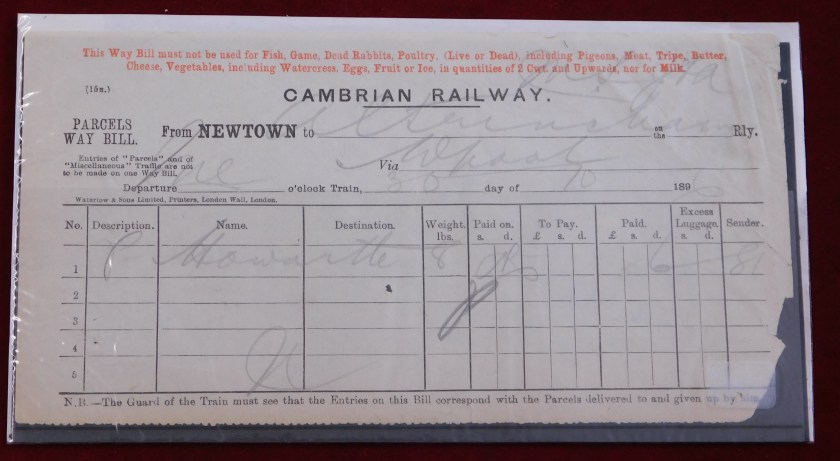 This Way Bill must not be used for Fish, Game, Dead Rabbits, Poultry, (Live or Dead), including Pigeons, Meat, Tripe, Butter,
Cheese, Vegetables, including Watercress, Eggs, Fruit or Ice, in quantities of 2 Cwt. and Upwards, nor for Milk.
CAMBRIAN RAILWAY.
PARCELS WAY BILL.
From NEWTOWN to on the Rly.
Entries of "Parcels" and of
"Miscellaneous" Traffic are not
to be made on one Way Bill.
Via
Departure o'clock Train, 30 day of 10 1896
Waterlow & Sons Limited, Printers, London Wall, London.
No. Description. Name. Destination. Weight. lbs. Paid on. s. d. To Pay. £ s. d. Paid. £ s. d. Excess Luggage. s. d. Sender.
1 P Howarth 8 6
2
3
4
5
N.B.—The Guard of the Train must see that the Entries on this Bill correspond with the Parcels delivered to and given up by him.